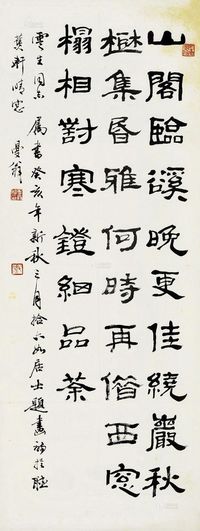 山閣臨溪晚更佳繞巖秋
樹集昏雅何時再借西窗
榻相對寒鐙細品茶
同志屬書癸亥年新秋三月拾六如居士題畫詩於
軒窗曼翁